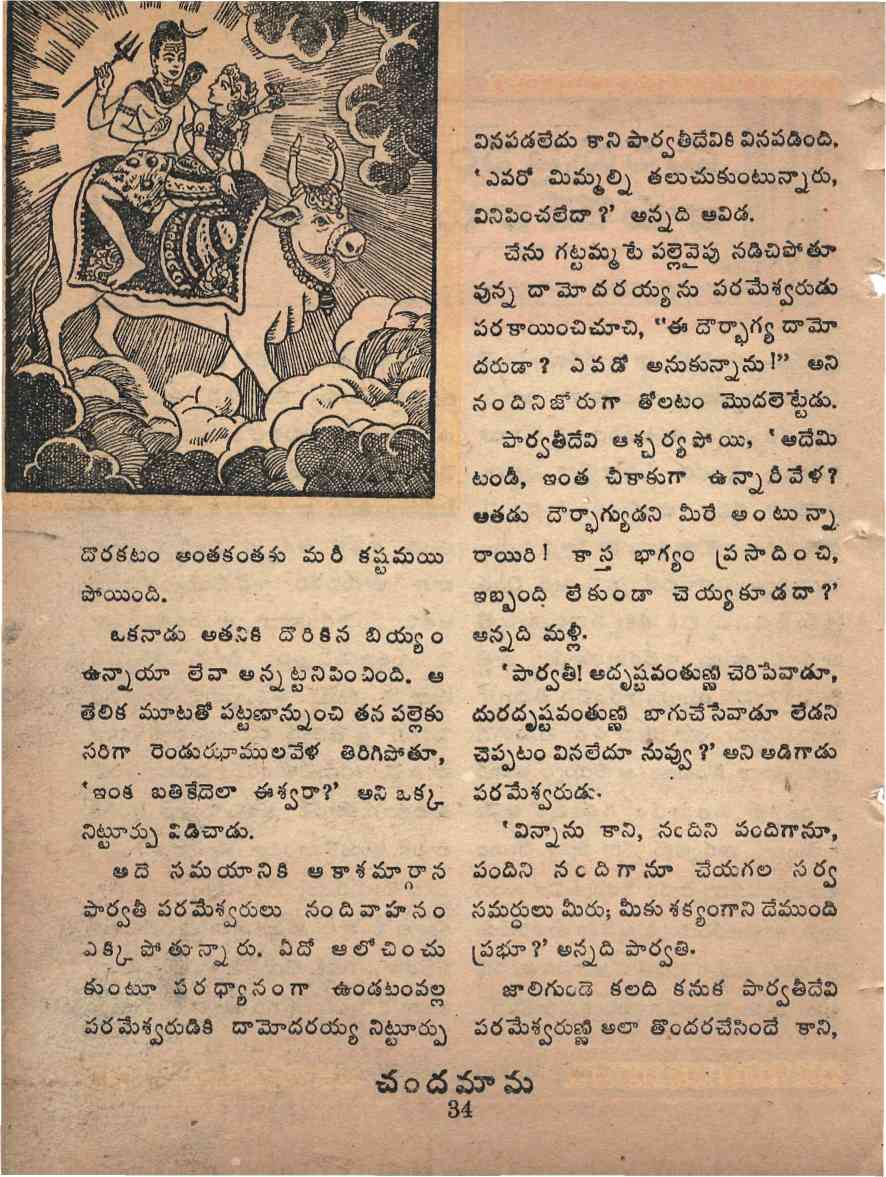 దొరకటం అంతకంతకు మరీ కష్టమయి
పోయింది.
ఒకనాడు అతనికి దొరికిన బియ్యం
ఉన్నాయా లేవా అన్నట్టనిపించింది. ఆ
తేలిక మూటతో పట్టణాన్నుంచి తన పల్లెకు
సరిగా రెండుఝాములవేళ తిరిగిపోతూ,
'ఇంక బతికేదెలా ఈశ్వరా?' అని ఒక్క
నిట్టూర్పు విడిచాడు.
అదె సమయానికి ఆకాశమార్గాన
పార్వతీ పరమేశ్వరులు నందివాహనం
ఎక్కి పోతున్నారు. ఏదో ఆలోచించు
కుంటూ పరధ్యానంగా ఉండటంవల్ల
పరమేశ్వరుడికి దామోదరయ్య నిట్టూర్పు
వినపడలేదు కాని పార్వతీదేవికి వినపడింది.
'ఎవరో మిమ్మల్ని తలుచుకుంటున్నారు,
వినిపించలేదా?' అన్నది ఆవిడ.
చేను గట్టమ్మటే పల్లెవైపు నడిచిపోతూ
వున్న దామోదరయ్యను పరమేశ్వరుడు
పరకాయించిచూచి, "ఈ దౌర్భాగ్య దామో
దరుడా? ఎవడో అనుకున్నాను!" అని
నందినిజోరుగా తోలటం మొదలెట్టేడు.
పార్వతీదేవి ఆశ్చర్యపోయి, 'అదేమి
టండీ, ఇంత చీకాకుగా ఉన్నారీవేళ?
అతడు దౌర్భాగ్యుడని మీరే అంటున్నా
రాయిరి! కాస్త భాగ్యం ప్రసాదించి,
ఇబ్బంది లేకుండా చెయ్యకూడదా?'
అన్నది మళ్లీ.
'పార్వతీ! అదృష్టవంతుణ్ణి చెరిపేవాడూ,
దురదృష్టవంతుణ్ణి బాగుచేసేవాడూ లేడని
చెప్పటం వినలేదూ నువ్వు?' అని అడిగాడు
పరమేశ్వరుడు.
'విన్నాను కాని, నందిని పందిగానూ,
పందిని నందిగానూ చేయగల సర్వ
సమర్ధులు మీరు; మీకు శక్యంగాని దేముంది
ప్రభూ?' అన్నది పార్వతి.
జాలిగుండె కలది కనుక పార్వతీదేవి
పరమేశ్వరుణ్ణి అలా తొందరచేసిందే కాని,
చందమామ
34